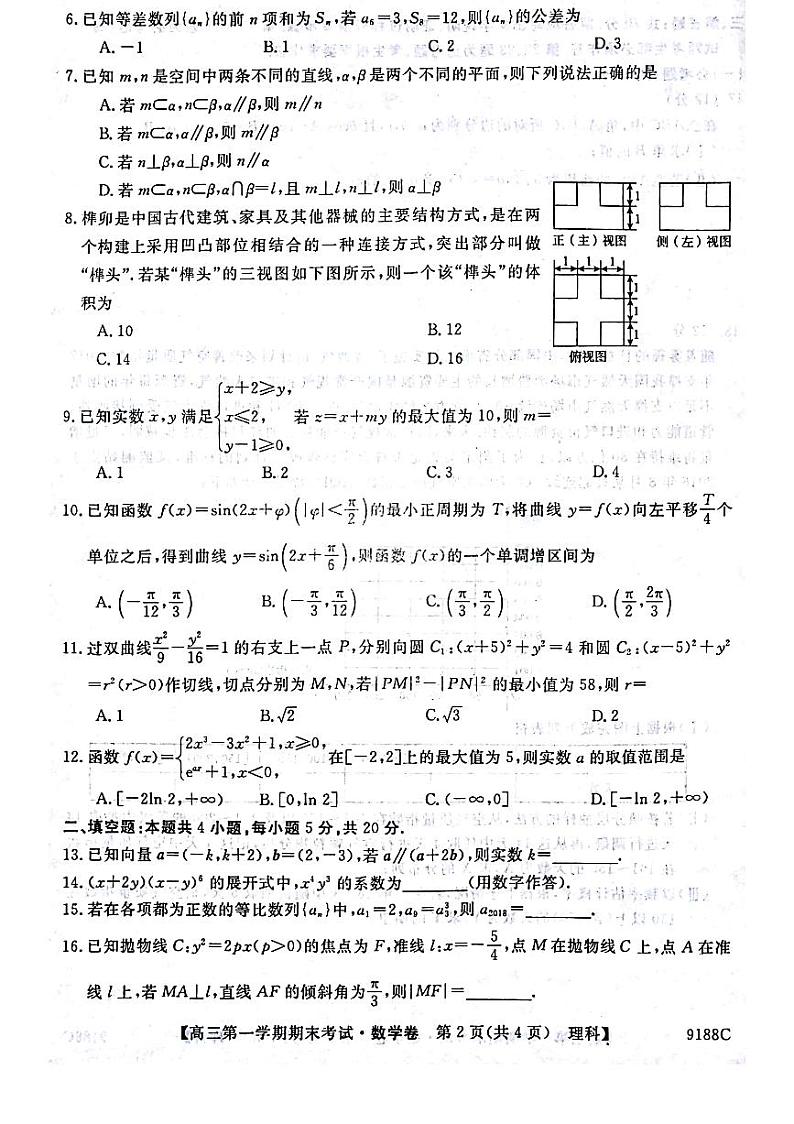 6.已知等差数列{aₙ}的前 n 项和为 Sₙ,若 a₆=3,S₈=12,则{aₙ}的公差为
A. -1 B. 1 C. 2 D. 3
7.已知 m,n 是空间中两条不同的直线,α,β是两个不同的平面,则下列说法正确的是
A. 若 m⊂α,n⊂β,α∥β,则 m∥n
B. 若 m⊂α,α∥β,则 m∥β
C. 若 n⊥β,α⊥β,则 n∥α
D. 若 m⊂α,n⊂β,α∩β=l,且 m⊥l,n⊥l,则 α⊥β
8.榫卯是中国古代建筑、家具及其他器械的主要结构方式,是在两
个构建上采用凹凸部位相结合的一种连接方式,突出部分叫做
“榫头”.若某“榫头”的三视图如下图所示,则一个该“榫头”的体
积为
1
1
正(主)视图 侧(左)视图
1 1 1
1
1
1
俯视图
A. 10 B. 12
C. 14 D. 16
9.已知实数 x,y 满足{x+2≥y, x≤2, y-1≥0, 若 z=x+my 的最大值为 10,则 m=
A. 1 B. 2 C. 3 D. 4
10.已知函数 f(x)=sin(2x+φ)(|φ|<π/2)的最小正周期为 T,将曲线 y=f(x)向左平移T/4个
单位之后,得到曲线 y=sin(2x+π/6),则函数 f(x)的一个单调增区间为
A. (-π/12,π/3) B. (-π/3,π/12) C. (π/3,π/2) D. (π/2,2π/3)
11.过双曲线x²/9-y²/16=1 的右支上一点 P,分别向圆 C₁:(x+5)²+y²=4 和圆 C₂:(x-5)²+y²
=r²(r>0)作切线,切点分别为 M,N,若|PM|²-|PN|² 的最小值为 58,则 r=
A. 1 B. √2 C. √3 D. 2
12.函数 f(x)={2x³-3x²+1,x≥0, eᵃˣ+1,x<0, 在[-2,2]上的最大值为 5,则实数 a 的取值范围是
A. [-2ln 2,+∞) B. [0,ln 2] C. (-∞,0] D. [-ln 2,+∞)
二、填空题:本题共 4 小题,每小题 5 分,共 20 分.
13.已知向量 a=(-k,k+2),b=(2,-3),若 a∥(a+2b),则实数 k=________.
14.(x+2y)(x-y)⁶ 的展开式中,x⁴y³ 的系数为________(用数字作答).
15.若在各项都为正数的等比数列{aₙ}中,a₁=2,a₉=a₃³,则 a₂₀₁₈=________.
16.已知抛物线 C:y²=2px(p>0)的焦点为 F,准线 l:x=-5/4,点 M 在抛物线 C 上,点 A 在准
线 l 上,若 MA⊥l,直线 AF 的倾斜角为π/3,则|MF|=________.
【高三第一学期期末考试·数学卷 第 2 页(共 4 页) 理科】 9188C